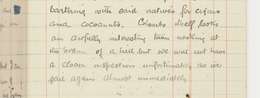 bartering with said natives for cigars
and cocoanuts. Chunks itself looks
an awfully interesting town nestling at
the bottom of a hill but we will not have
a closer inspection unfortunately as we
sail again almost immediately